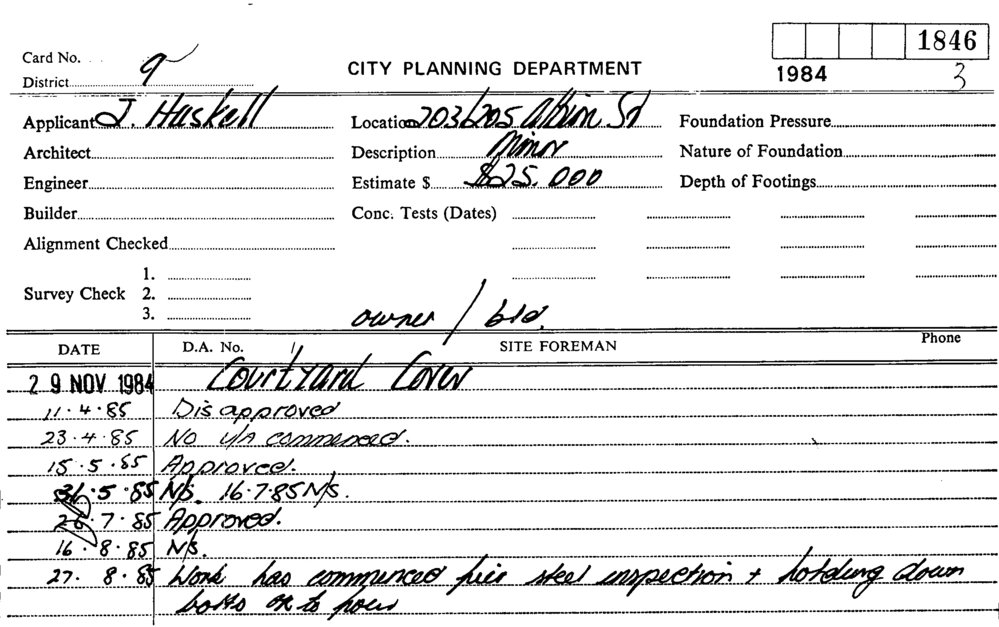 1846
Card No. 9
CITY PLANNING DEPARTMENT
1984 3
District
Applicant J. Haskell Location 203/205 Albion St Foundation Pressure
Architect Description Minor Nature of Foundation
Engineer Estimate $ $25.000 Depth of Footings
Builder Conc. Tests (Dates)
Alignment Checked
1.
Survey Check 2.
3.
owner / bld.
DATE D.A. No. SITE FOREMAN Phone
29 NOV 1984 Courtyard Cover
11.4.85 Disapproved
23.4.85 No commenced.
15.5.85 Approved.
31.5.85 N/s. 16.7.85 N/s.
26.7.85 Approved.
16.8.85 N/s.
27.8.85 Work has commenced pier steel inspection + holding down
bolts ok to pour